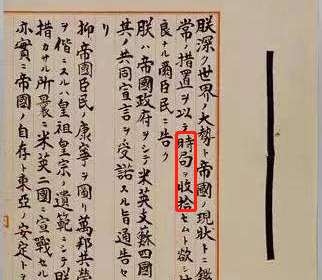 朕深ク世界ノ大勢ト帝國ノ現狀トニ鑑
常ノ措置ヲ以テ時局ヲ收拾セムト欲シ
良ナル爾臣民ニ告ク
朕ハ帝國政府ヲシテ米英支蘇四國
其ノ共同宣言ヲ受諾スル旨通告セ
リ
抑〻帝國臣民ノ康寧ヲ圖リ萬邦共榮
ヲ偕ニスルハ皇祖皇宗ノ遺範ニシテ朕
措カサル所曩ニ米英二國ニ宣戰セル
亦實ニ帝國ノ自存ト東亞ノ安定ト